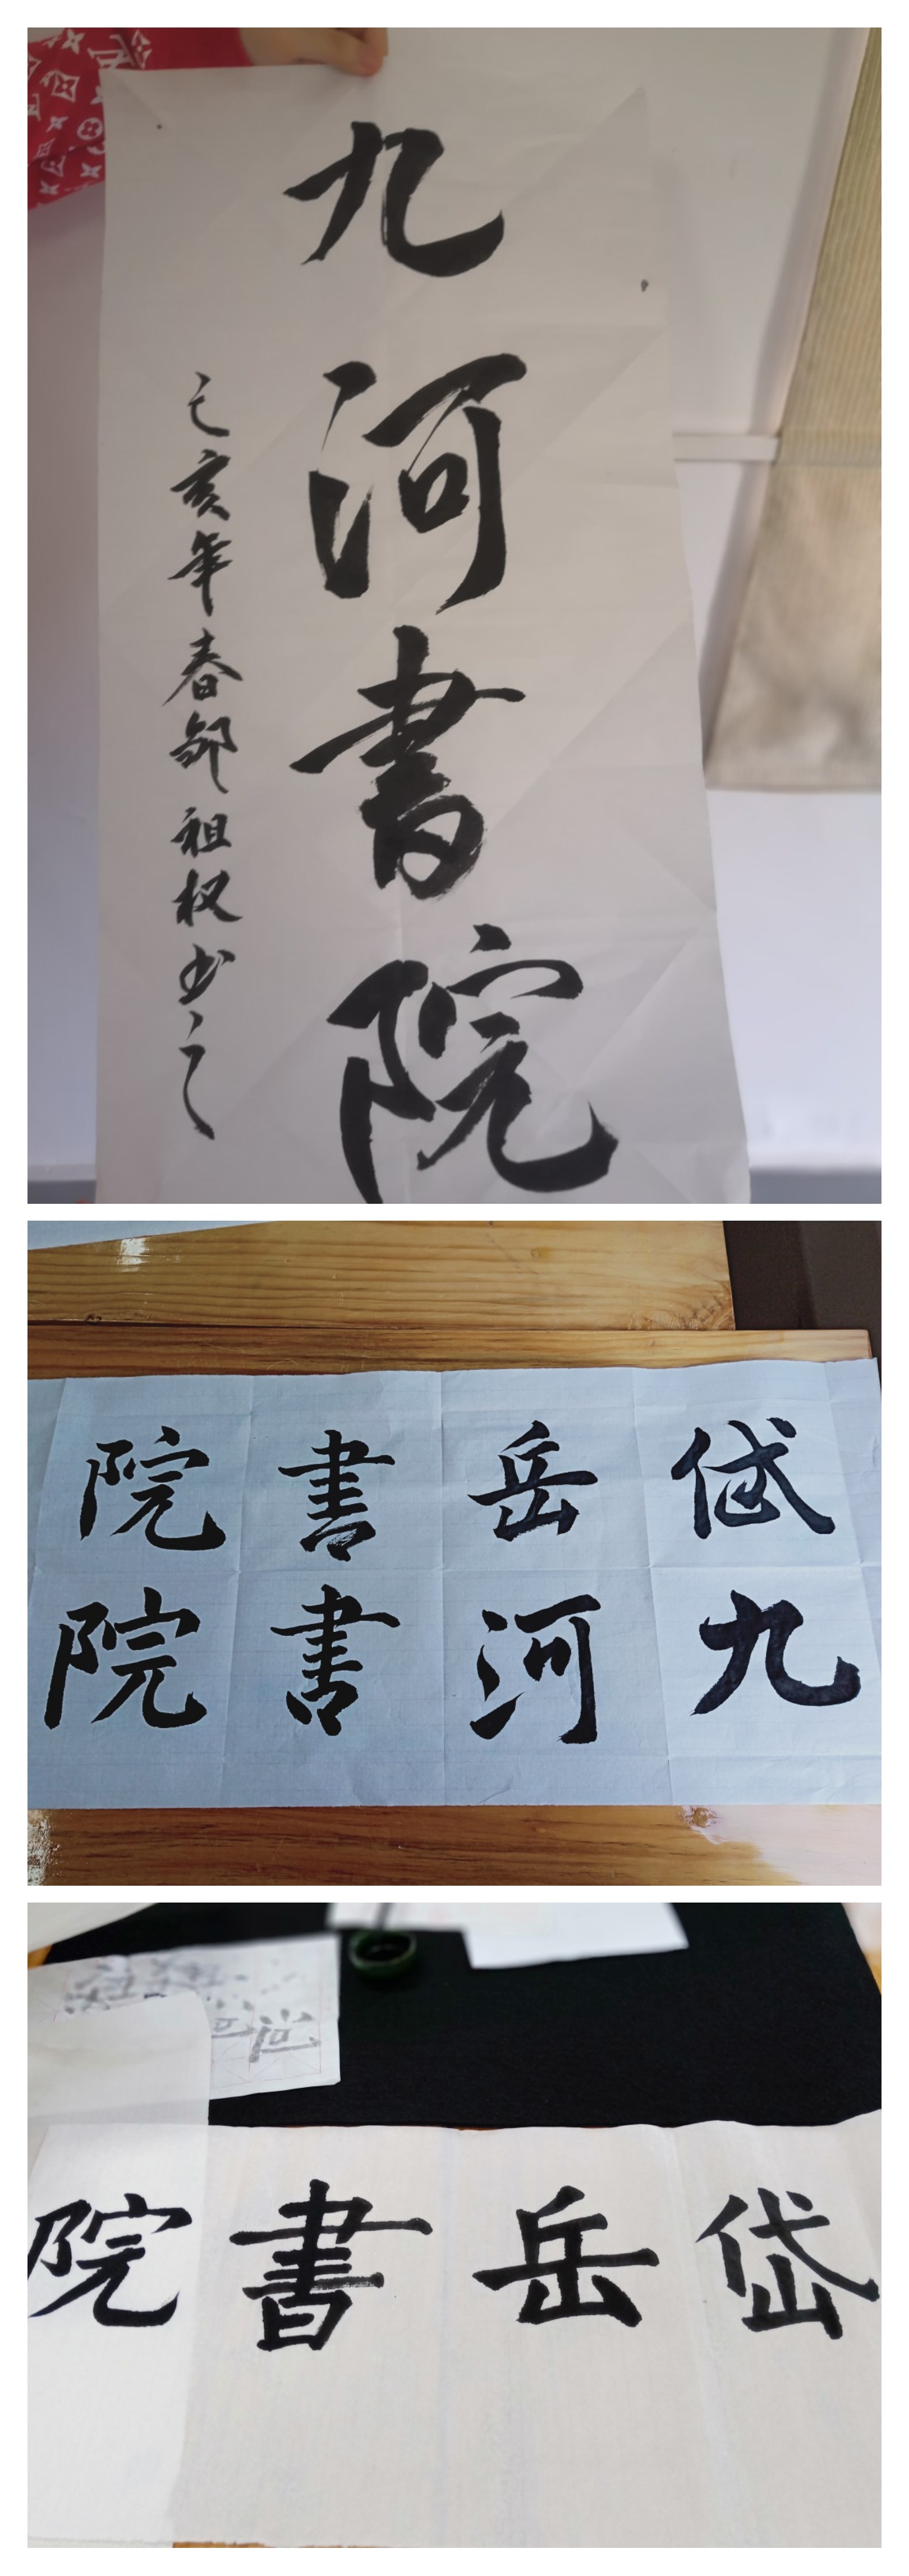 九河書院
己亥年春邹祖权书之
岱岳書院
九河書院
岱岳書院